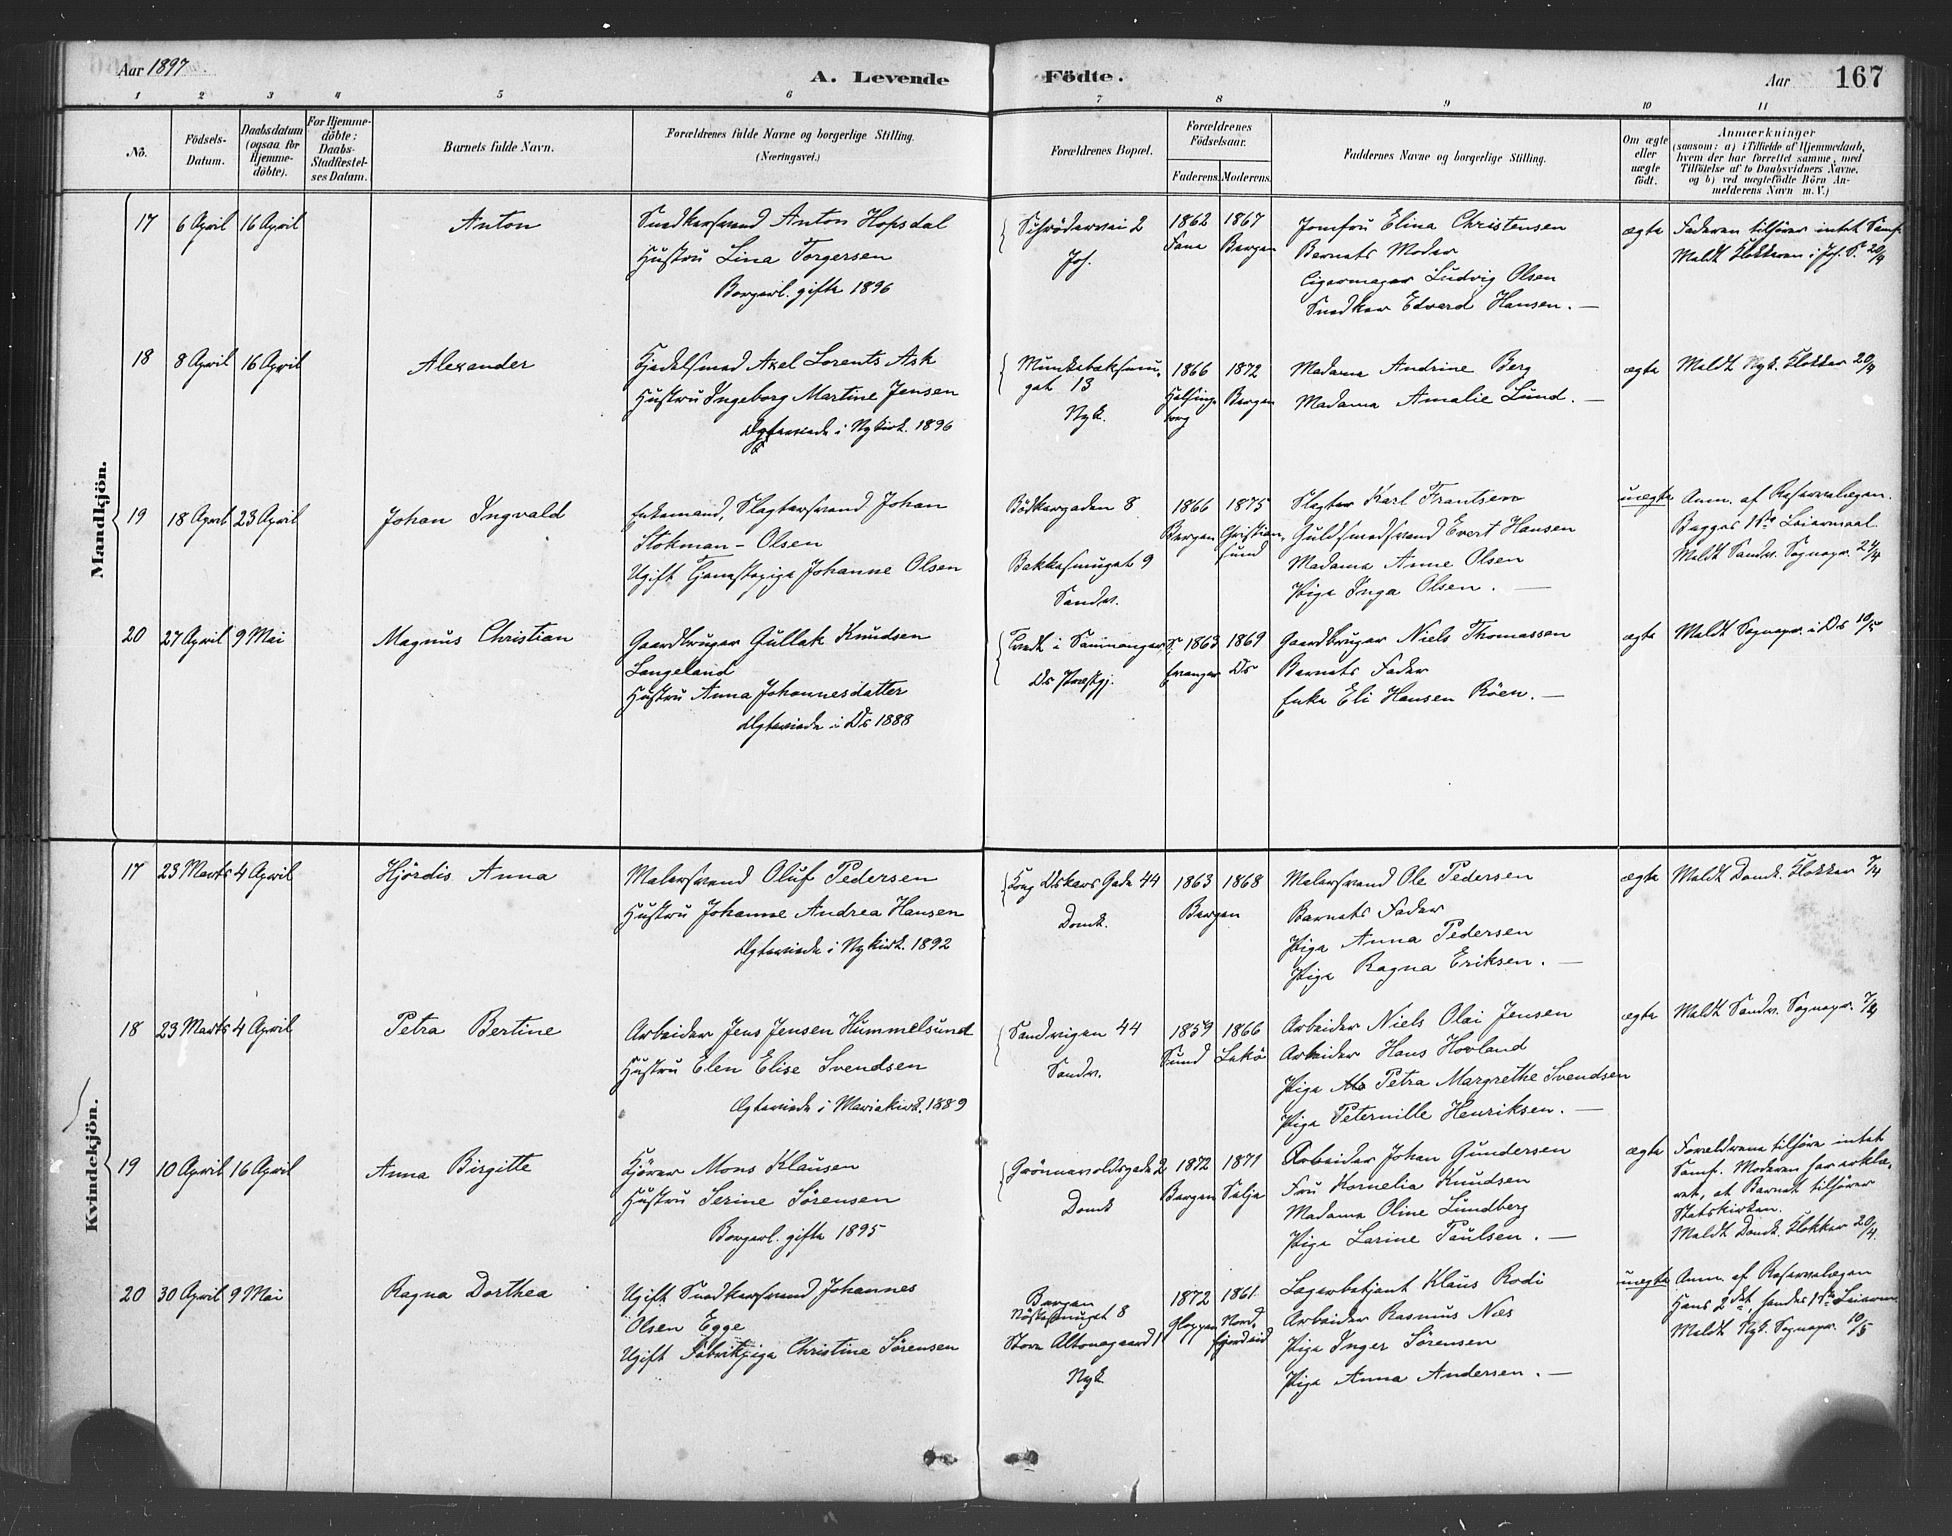 Aar 1897.
A. Levende Födte.
Aar 167
1 2 3 4 5 6 7 8 9 10 11
No.
Födsels-Datum.
Daabsdatum (ogsaa for Hjemme-döbte).
For Hjemme-döbte: Daabs-Stadfæstel-ses Datum.
Barnets fulde Navn.
Forældrenes fulde Navne og borgerlige Stilling.
(Næringsvei.)
Forældrenes Bopæl.
Forældrenes Födselsaar.
Faderens. Moderens.
Faddernes Navne og borgerlige Stilling.
Om ægte eller uægte födt.
Anmærkninger
(saasom: a) i Tilfælde af Hjemmedaab, hvem der har forrettet samme, med Tilföielse af to Daabsvidners Navne. og b) ved uægtefödte Börn An-melderens Navn m. V.)
Mandkjön.
17 6 April 16 April Anton
Snedkersvend Anton Hopsdal
Hustru Lina Torgersen
Borgerl. gifte 1896
Schrödersvei 2
Joh.
1862 1867
Fane Bergen
Jomfru Elina Christensen
Barnets Moder
Cigarmager Ludvig Olsen
Snedker Edvard Hansen. —
ægte
Faderen tilhører intet Samf.
Meldt Klokkeren i Joh. S. 20/4
18 8 April 16 April Alexander
Kjedelsmed Axel Lorents Ask
Hustru Ingeborg Martine Jensen
Ægteviede i Nykirk. 1896
Munkebæksmu-
get 13
Nyk.
1866 1872
Helsing- Bergen
borg
Madame Andrine Berg
Madame Amalie Lund. —
ægte
Meldt Nyk. Klokker 20/4
19 18 April 23 April Johan Ingvald
Enkemand, Slagtersvend Johan
Stokman - Olsen
Ugift Tjenestepige Johanne Olsen
Bödkergaden 8
Bakkesmuget 9
Sandv.
1866 1875
Bergen Christian-
sund
Slagter Karl Frantsen
Guldsmedsvend Evert Hansen
Madame Anne Olsen
Pige Inga Olsen. —
uægte
Anm. af Reservelægen.
Begges 1ste Leiermaal.
Meldt Sandv. Sognepr. 24/4
20 27 April 9 Mai Magnus Christian
Gaardbruger Gullak Knudsen
Langeland
Hustru Anna Johannesdatter
Ægteviede i Os 1888
Tvedt i Samnanger
Os Præstgj.
S. 1863 1869
Evanger Os
Gaardbruger Niels Thomassen
Barnets Fader
Enke Eli Hansen Röen. —
ægte
Meldt Sognepr. i Os 10/5
Kvindekjön.
17 23 Marts 4 April Hjördis Anna
Malersvend Oluf Pedersen
Hustru Johanne Andrea Hansen
Ægteviede i Nykirk. 1892
Kong Oskars Gade 44
Domk.
1863 1868
Bergen
Malersvend Ole Pedersen
Barnets Fader
Pige Anna Pedersen
Pige Ragna Eriksen. —
ægte
Meldt Domk. Klokker 7/4
18 23 Marts 4 April Petra Bertine
Arbeider Jens Jensen Hummelsund
Hustru Elen Elise Svendsen
Ægteviede i Mariakirk. 1889
Sandvigen 44
Sandv.
1859 1866
Sund Lekö
Arbeider Niels Olai Jensen
Arbeider Hans Hovland
Pige Petra Margrethe Svendsen
Pige Peternille Henriksen. —
ægte
Meldt Sandv. Sognepr. 7/4
19 10 April 16 April Anna Birgitte
Kjörer Mons Klausen
Hustru Serine Sörensen
Borgerl. gifte 1895
Grönnevoldsgade 2
Domk
1872 1871
Bergen Selje
Arbeider Johan Gundersen
Fru Kornelia Knudsen
Madame Oline Lundberg
Pige Larine Paulsen. —
ægte
Forældrene tilhöre intet
Samf. Moderen har erklæ-
ret, at Barnet tilhører
Statskirken.
Meldt Domk. Klokker 20/4.
20 30 April 9 Mai Ragna Dorthea
Ugift Snedkersvend Johannes
Olsen Egge
Ugift Fabrikpige Christine Sörensen
Bergen
Nöstesmuget 8
Store Altonagaard 1
Nyk
1872 1861
Gloppen Nord-
fjordeid
Lagerbetjent Klaus Rodi
Arbeider Rasmus Næs
Pige Inger Sörensen
Pige Anna Andersen. —
uægte
Anm. af Reservelægen
Hans 2det, hendes 1ste Leierm.
Meldt Nyk. Sognepr. 10/5